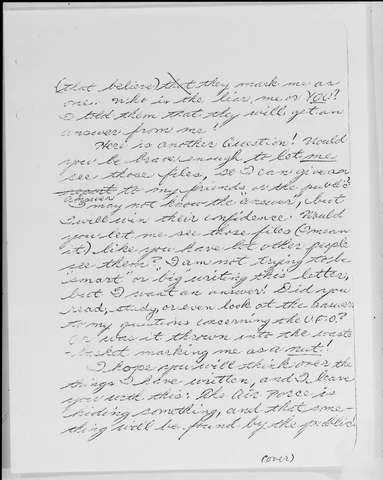 (that believe) that they mark me as
one. Who is the liar, me or YOU?
I told them that they will get an
answer from me!
Here is another Question! Would
you be brave enough to let me
see those files, so I can give an
answer to my friends, or the public?
"I may not know the answer", but
I will win their confidence. Would
you let me see those files (I mean
it) like you have let other people
see them? I am not trying to be
"smart" or "big" writing this letter,
but I want an answer! Did you
read, study, or even look at the answers
to my questions concerning the U.F.O.?
Or was it thrown into the waste
-basket marking me as a nut!
I hope you will think over the
things I have written, and I leave
you with this: The Air Force is
hiding something, and that some-
thing will be found by the public.
(over)